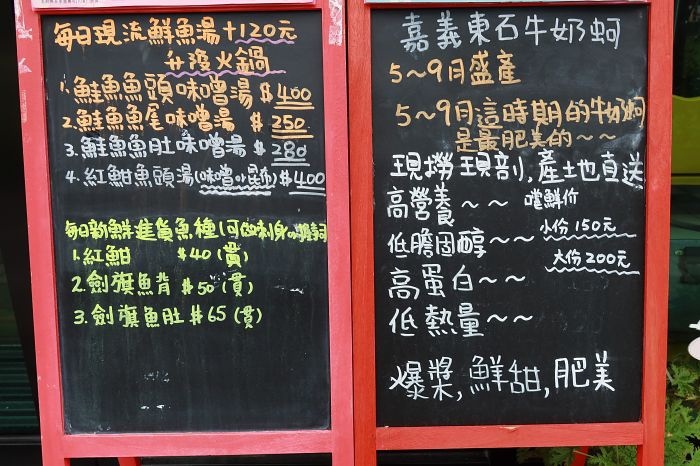 每日現流鮮魚湯+120元
升級火鍋
1.鮭魚魚頭味噌湯 $400
2.鮭魚魚尾味噌湯 $250
3.鮭魚魚肚味噌湯 $280
4.紅魽魚頭湯(味噌or昆布)$400
每日新鮮進貨魚種(可做刺身
1.紅魽 $40(貫)
2.劍旗魚背 $50(貫)
3.劍旗魚肚 $65(貫)
嘉義東石牛奶蚵
5~9月盛產
5~9月這時期的牛奶蚵
是最肥美的~~
現撈現剖,產地直送
高營養~~ 嚐鮮价
低膽固醇~~ 小份150元
大份200元
高蛋白~~
低熱量~~
爆漿,鮮甜,肥美